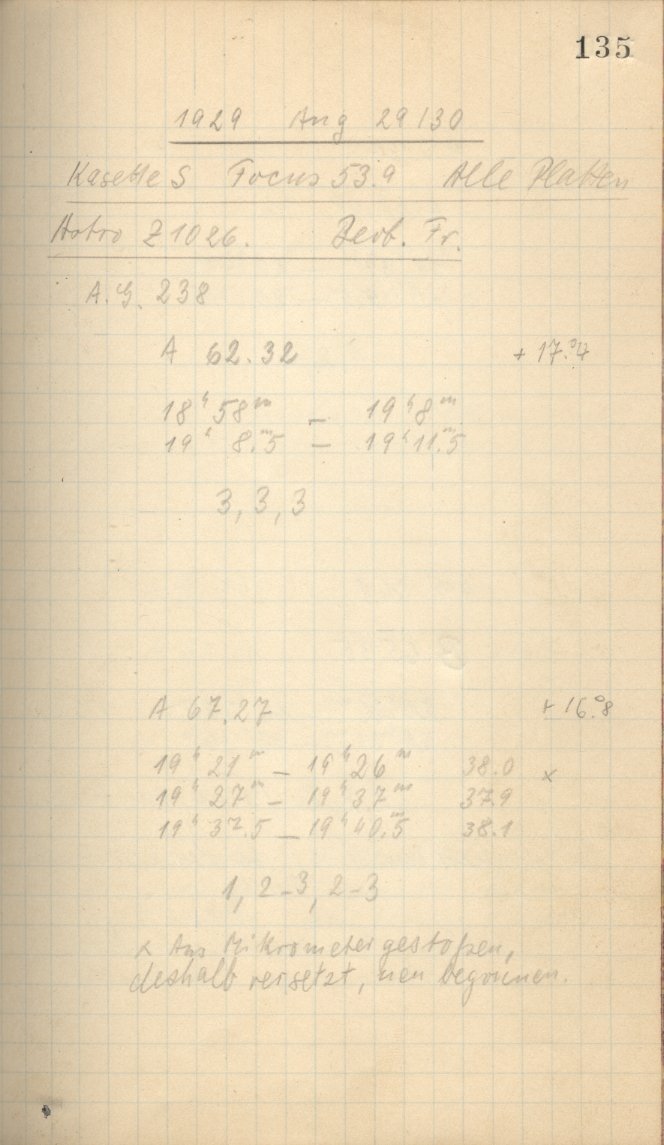 135
1929 Aug 29/30
Kasette S Focus 53.9 Alle Platten
Astro Z 1026. Beob. Fr.
A.G. 238
A 62.32 + 17.°4
18ʰ 58ᵐ – 19ʰ 8ᵐ
19ʰ 8.ᵐ5 – 19ʰ 11.ᵐ5
3, 3, 3
A 67.27 + 16.°8
19ʰ 21ᵐ – 19ʰ 26ᵐ 38.0 x
19ʰ 27ᵐ – 19ʰ 37ᵐ 37.9
19ʰ 37.ᵐ5 – 19ʰ 40.ᵐ5 38.1
1, 2–3, 2–3
x Ans Mikrometer gestoßen,
deshalb versetzt, neu begonnen.